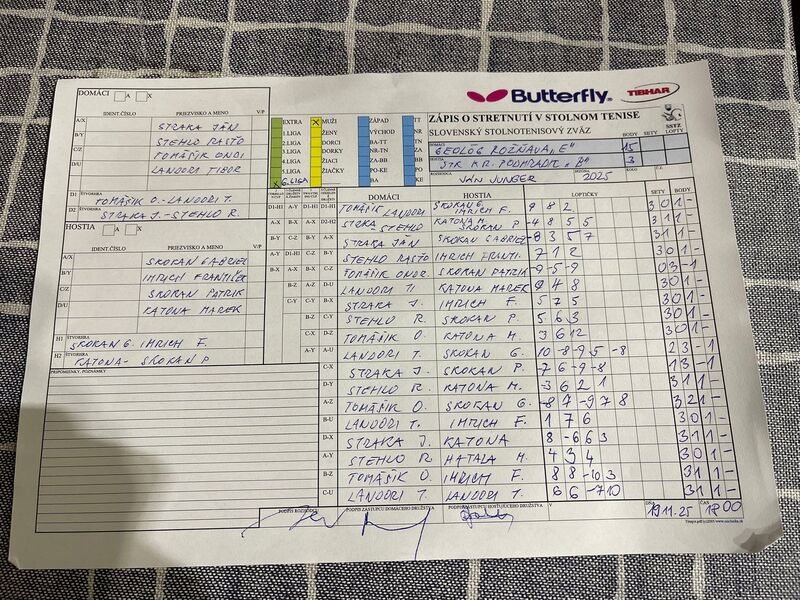 Butterfly TIBHAR
ZÁPIS O STRETNUTÍ V STOLNOM TENISE
SLOVENSKÝ STOLNOTENISOVÝ ZVÄZ
SSTZ
DOMÁCI BODY SETY LOPTY
GEOLÓG ROŽŇAVA "E" 15
HOSTIA
STK KR. PODHRADIE "B" 3
ROZHODCA SEZÓNA KOLO
JÁN JUNGER 2025
DOMÁCI A X
IDENT.ČÍSLO PRIEZVISKO A MENO V/P
A/X STRAKA JÁN
B/Y STEHLO RASŤO
C/Z TOMÁŠIK ONDR
D/U LANDORI TIBOR
D1 ŠTVORHRA TOMÁŠIK O. - LANDORI T.
D2 ŠTVORHRA STRAKA J. - STEHLO R.
HOSTIA A X
IDENT.ČÍSLO PRIEZVISKO A MENO V/P
A/X SKOKAN GABRIEL
B/Y IMRICH FRANTIŠEK
C/Z SKOKAN PATRIK
D/U KATONA MAREK
H1 ŠTVORHRA SKOKAN G. IMRICH F.
H2 ŠTVORHRA KATONA - SKOKAN P
PRIPOMIENKY, POZNÁMKY
EXTRA X MUŽI ZÁPAD TT
1.LIGA ŽENY VÝCHOD NR
2.LIGA DORCI BA-TT TN
3.LIGA DORKY TN-NR ZA
4.LIGA ŽIACI ZA-BB BB
5.LIGA ŽIAČKY PO-KE PO
X 6.LIGA BA KE
DOMÁCI HOSTIA LOPTIČKY SETY BODY
D1-H1 TOMÁŠIK LANDORI SKOKAN G. IMRICH F. 9 8 2 3 0 1 -
D2-H2 STRAKA STEHLO KATONA M. SKOKAN P -4 8 5 5 3 1 1 -
A-X STRAKA JÁN SKOKAN GABRIEL -8 3 5 7 3 1 1 -
B-Y STEHLO RASŤO IMRICH FRANTI. 7 1 2 3 0 1 -
C-Z TOMÁŠIK ONDR. SKOKAN PATRIK -9 -5 -9 0 3 - 1
D-U LANDORI TI KATONA MAREK 9 4 8 3 0 1 -
A-Y STRAKA J. IMRICH F. 5 7 5 3 0 1 -
B-Z STEHLO R. SKOKAN P. 5 6 3 3 0 1 -
C-U TOMÁŠIK O. KATONA M. 3 6 12 3 0 1 -
LANDORI T. SKOKAN G. 10 -8 -9 5 -8 2 3 - 1
C-X STRAKA J. SKOKAN P. -7 6 -9 -8 1 3 - 1
D-Y STEHLO R. KATONA M. -3 6 2 1 3 1 1 -
A-Z TOMÁŠIK O. SKOKAN G. -8 7 -9 7 8 3 2 1 -
B-U LANDORI T. IMRICH F. 1 7 6 3 0 1 -
D-X STRAKA J. KATONA 8 -6 6 3 3 1 1 -
A-Y STEHLO R HATALA M. 4 3 4 3 0 1 -
B-Z TOMÁŠIK O. IMRICH F. 8 8 -10 3 3 1 1 -
C-U LANDORI T. LANDORI T. 6 6 -7 10 3 1 1 -
PODPIS ROZHODCU PODPIS ZÁSTUPCU DOMÁCEHO DRUŽSTVA PODPIS ZÁSTUPCU HOSŤUJÚCEHO DRUŽSTVA V DŇA 19.11.25 ČAS 18 00